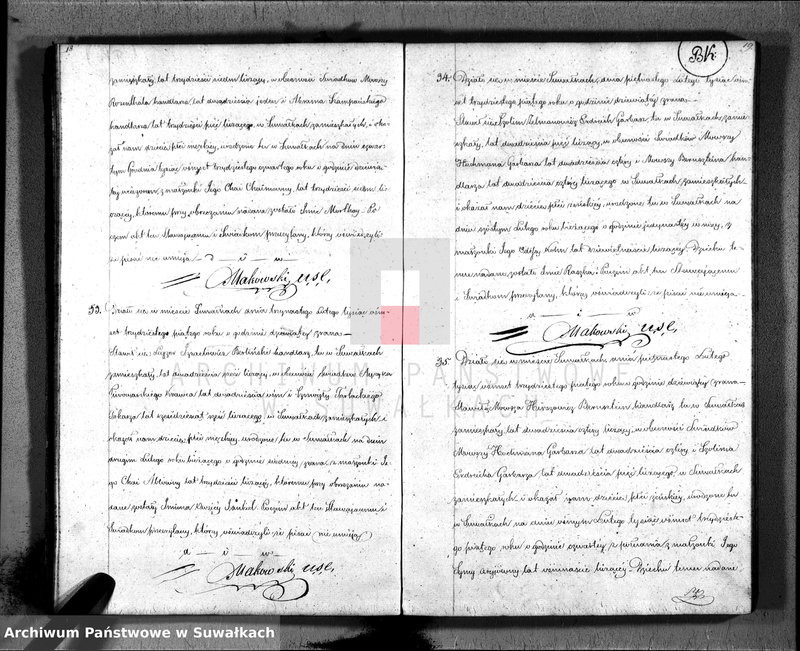 18
zamieszkały, lat trzydzieści siedm liczący, w obecności Świadków Mowszy
Rozenthala handlarza lat dwadzieścia jeden i Abrama
handlarza lat trzydzieści pięć liczącego, w Suwałkach zamieszkałych, i oka-
zał nam dziecię płci męzkiej, urodzone tu w Suwałkach na dniu czwar-
tym Grudnia tysiąc ośmset trzydziestego czwartego roku o godzinie
wieczorem, z małżonki Jego Chai lat trzydzieści liczącej, któremu przy obrzezaniu nadane zostało Imie Mortkay. Po-
czem akt ten Stawającemu i Świadkom przeczytany, którzy oświadczyli
że pisać nie umieją.
Makowski U.S.C.
33. Działo się w mieście Suwałkach dnia trzynastego Lutego tysiąc ośm-
set trzydziestego piątego roku o godzinie dziewiątej zrana.
Stawił się handlarz, tu w Suwałkach
zamieszkały, lat dwadzieścia pięć liczący, w obecności Świadków
lat dwadzieścia ośm i
lat sześćdziesiąt sześć liczącego, w Suwałkach zamieszkałych i
okazał nam dziecię płci męzkiej, urodzone tu w Suwałkach na dniu
drugim Lutego roku bieżącego o godzinie siódmej zrana z małżonki Je-
go Chai lat trzydzieści liczącej, któremu przy obrzezaniu na-
dane zostały Imiona Jankel. Poczem akt ten Stawającemu i
Świadkom przeczytany, którzy oświadczyli że pisać nie umieją
Makowski U.S.C.
19
BK.
34. Działo się w mieście Suwałkach, dnia piętnastego Lutego tysiąc ośm-
set trzydziestego piątego roku o godzinie dziewiątej zrana.
Stawił się Szolim Zelmanowicz Garbarz tu w Suwałkach zamie-
szkały, lat dwadzieścia pięć liczący, w obecności Świadków Mowszy
Hochmana Garbarza lat dwadzieścia cztery i Mowszy Bernszteina han-
dlarza lat dwadzieścia cztery liczącego w Suwałkach zamieszkałych
i okazał nam dziecię płci żeńskiej, urodzone tu w Suwałkach na
dniu szóstym Lutego roku bieżącego o godzinie jedynastej w nocy, z
małżonki Jego lat dziewiętnaście liczącej. Dziecku te-
mu nadano zostało Imie Raszka i Poczem akt ten Stawającemu
i Świadkom przeczytany, którzy oświadczyli że pisać nie umieją.
Makowski U.S.C.
35. Działo się w mieście Suwałkach dnia piętnastego Lutego
tysiąc ośmset trzydziestego piątego roku o godzinie dziewiątej zrana.
Stawił się Mowsza Herszowicz Bernsztein handlarz tu w Suwałkach
zamieszkały, lat dwadzieścia cztery liczący, w obecności Świadków
Mowszy Hochmana Garbarza lat dwadzieścia cztery i Szolima
Garbarza lat dwadzieścia pięć liczącego, w Suwałkach
zamieszkałych i okazał nam dziecię płci żeńskiej, urodzone tu
w Suwałkach na dniu ósmym Lutego tysiąc ośmset trzydzieste-
go piątego roku o godzinie czwartej z południa z małżonki Jego
lat ośmnaście liczącej. Dziecku temu nadane
ARCHIWUM PAŃSTWOWE
W SUWAŁKACH
Archiwum Państwowe w Suwałkach